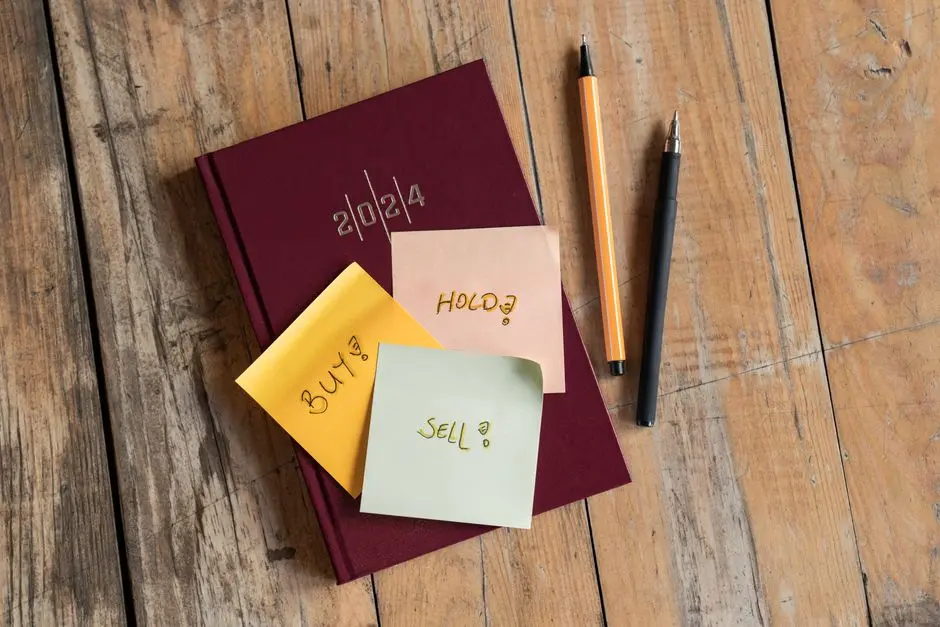 2024
HOLD?
BUY?
SELL?